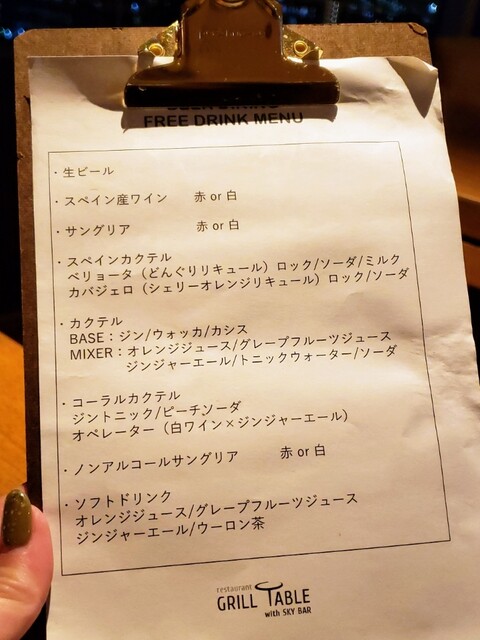 FREE DRINK MENU
・生ビール
・スペイン産ワイン 赤 or 白
・サングリア 赤 or 白
・スペインカクテル
ベリョータ（どんぐりリキュール）ロック/ソーダ/ミルク
カバジェロ（シェリーオレンジリキュール）ロック/ソーダ
・カクテル
BASE：ジン/ウォッカ/カシス
MIXER：オレンジジュース/グレープフルーツジュース
ジンジャーエール/トニックウォーター/ソーダ
・コーラルカクテル
ジントニック/ピーチソーダ
オペレーター（白ワイン×ジンジャーエール）
・ノンアルコールサングリア 赤 or 白
・ソフトドリンク
オレンジジュース/グレープフルーツジュース
ジンジャーエール/ウーロン茶
restaurant
GRILL TABLE
with SKY BAR